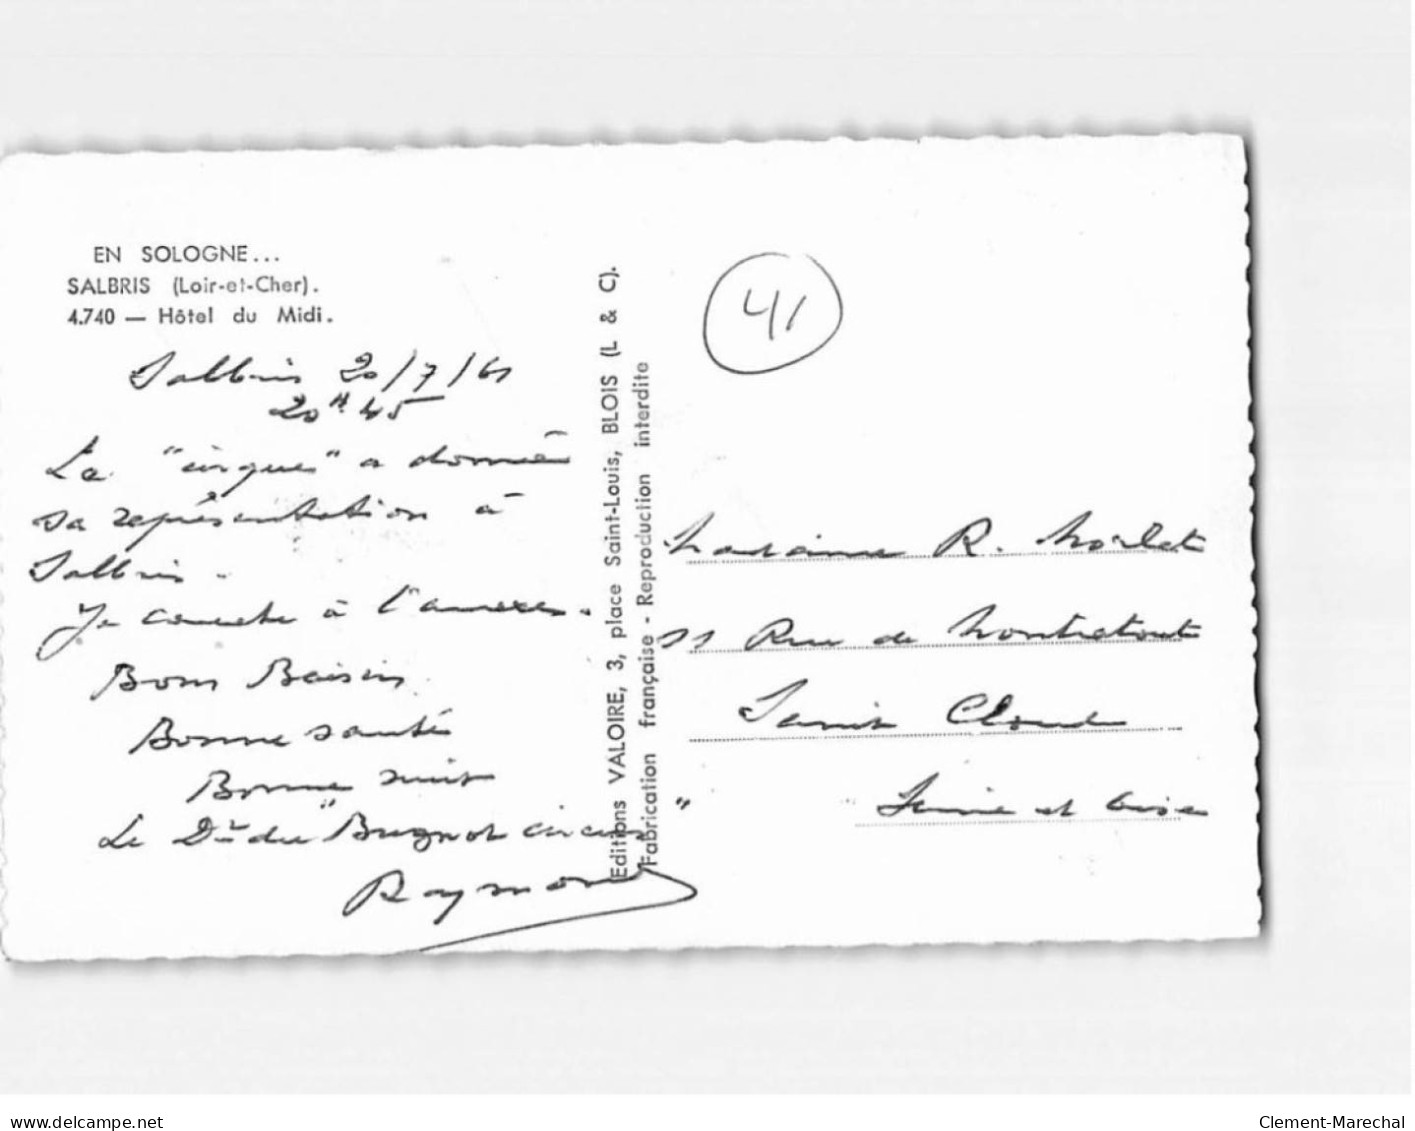 EN SOLOGNE...
SALBRIS (Loir-et-Cher).
4.740 — Hôtel du Midi.
Salbris 20/7/61
20H45
Le "cirque" a donné
sa représentation à
Salbris.
Je couche à l'annexe.
Bons Baisers
Bonne santé
Bonne nuit
Le Dr du "Bugnot circus"
Raymond
Editions VALOIRE, 3, place Saint-Louis, BLOIS (L & C).
Fabrication française - Reproduction interdite
41
Madame R. Morlet
11 Rue de Montretout
Saint Cloud
Seine et Oise
delcampe.net
Clement-Marechal